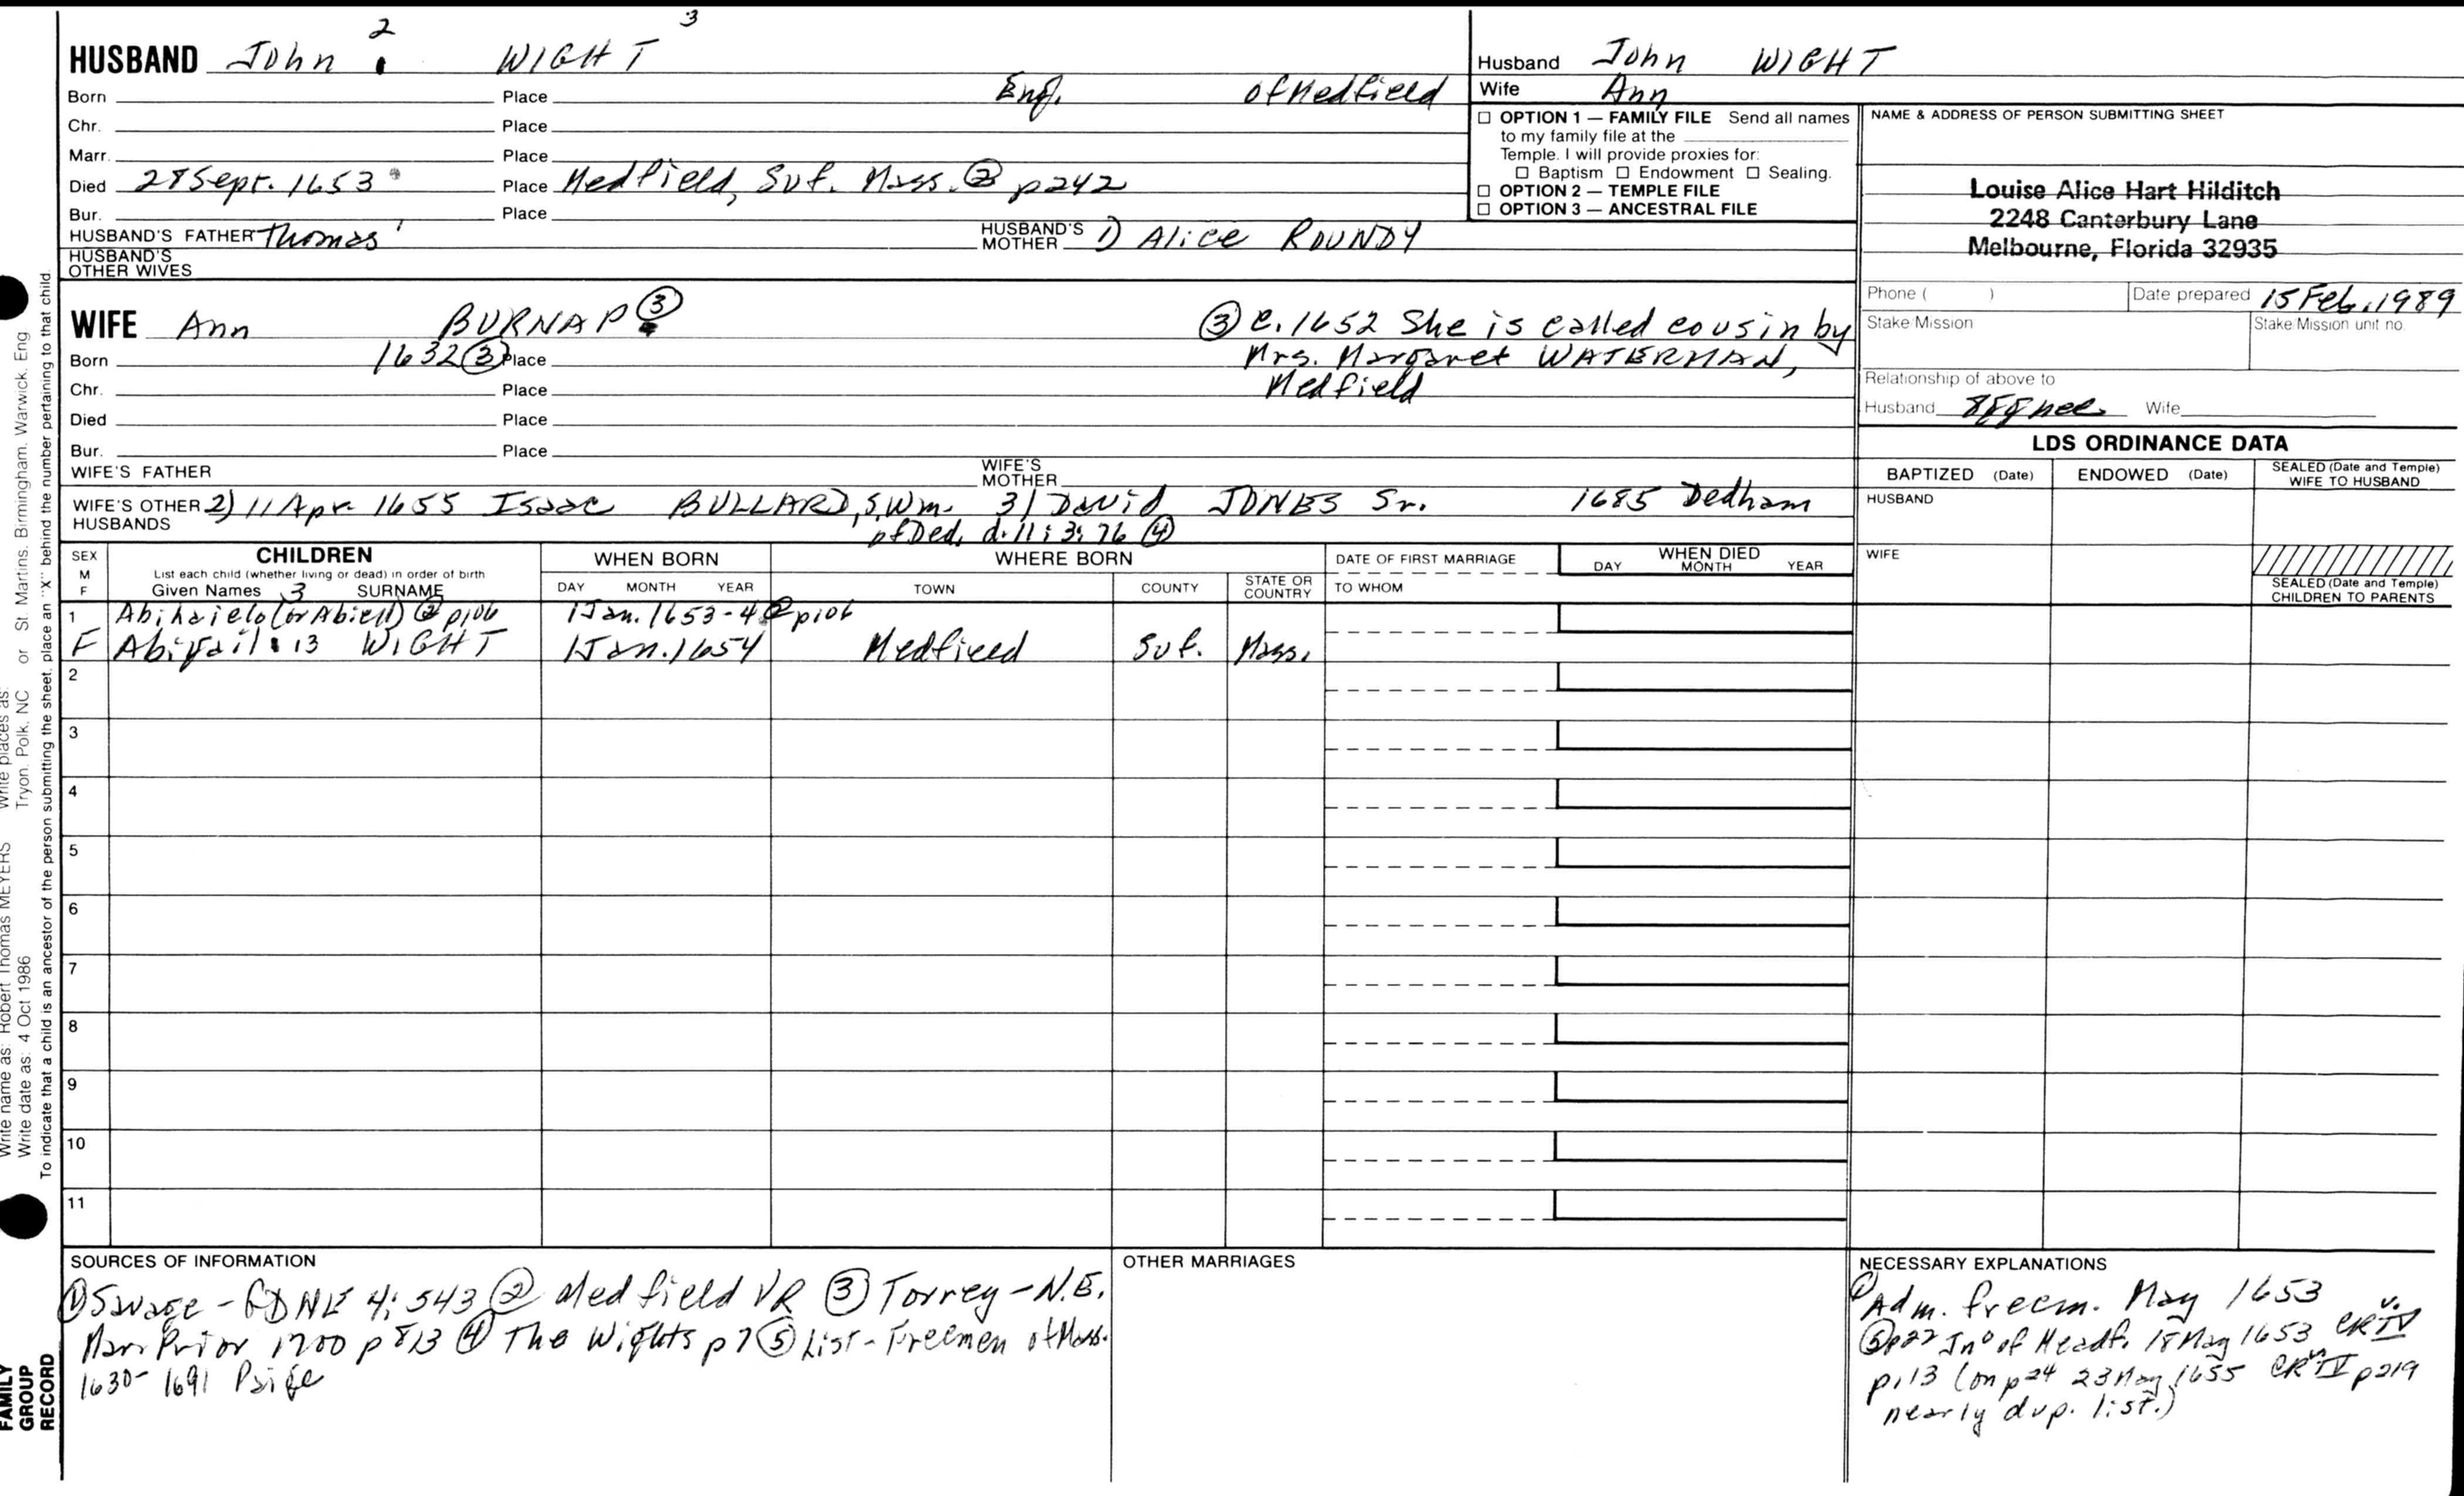 2 3
HUSBAND John 1 WIGHT
Born Place Eng. of Medfield
Chr. Place
Marr. Place
Died 28 Sept. 1653 Place Medfield, Suf. Mass. ② p242
Bur. Place
HUSBAND'S FATHER Thomas 1 HUSBAND'S MOTHER 1) Alice ROUNDY
HUSBAND'S OTHER WIVES
Husband John WIGHT
Wife Ann
☐ OPTION 1 — FAMILY FILE Send all names
to my family file at the
Temple. I will provide proxies for:
☐ Baptism ☐ Endowment ☐ Sealing.
☐ OPTION 2 — TEMPLE FILE
☐ OPTION 3 — ANCESTRAL FILE
NAME & ADDRESS OF PERSON SUBMITTING SHEET
Louise Alice Hart Hilditch
2248 Canterbury Lane
Melbourne, Florida 32935
Phone ( ) Date prepared 15 Feb. 1989
Stake/Mission Stake/Mission unit no.
Relationship of above to
Husband Wife
WIFE Ann BURNAP ③ ③ c. 1652 She is called cousin by
Born 1632 ③ Place Mrs. Margaret WATERMAN,
Chr. Place Medfield
Died Place
Bur. Place
WIFE'S FATHER WIFE'S MOTHER
WIFE'S OTHER HUSBANDS 2) 11 Apr. 1655 Isaac BULLARD, S. Wm. 3) David JONES Sr. 1685 Dedham
of Ded. d. 11: 3: 76 ④
LDS ORDINANCE DATA
BAPTIZED (Date) ENDOWED (Date) SEALED (Date and Temple) WIFE TO HUSBAND
HUSBAND
WIFE
SEALED (Date and Temple) CHILDREN TO PARENTS
SEX M F
CHILDREN
List each child (whether living or dead) in order of birth
Given Names 3 SURNAME
WHEN BORN
DAY MONTH YEAR
WHERE BORN
TOWN COUNTY STATE OR COUNTRY
DATE OF FIRST MARRIAGE
TO WHOM
WHEN DIED
DAY MONTH YEAR
1 (or Abiell) ② p106 1 Jan. 1653-4 ② p106
F Abigail 13 WIGHT 1 Jan. 1654 Medfield Suf. Mass.
2
3
4
5
6
7
8
9
10
11
SOURCES OF INFORMATION
① Savage - GDNE 4: 543 ② Medfield VR ③ Torrey - N.E.
Marr. Prior 1700 p 813 ④ The Wights p 7 ⑤ List - Freemen of Mass.
1630- 1691 Paige
OTHER MARRIAGES
NECESSARY EXPLANATIONS
① Adm. freem. May 1653
⑤ p22 Jnº of Meadf. 18 May 1653 CR v. IV
p113 (on p24 23 May 1655 CR v. IV p219
nearly dup. list.)
Write name as: Robert Thomas MEYERS Write places as: Tryon, Polk, NC or St. Martins, Birmingham, Warwick, Eng
Write date as: 4 Oct 1986
To indicate that a child is an ancestor of the person submitting the sheet, place an "X" behind the number pertaining to that child.
FAMILY
GROUP
RECORD